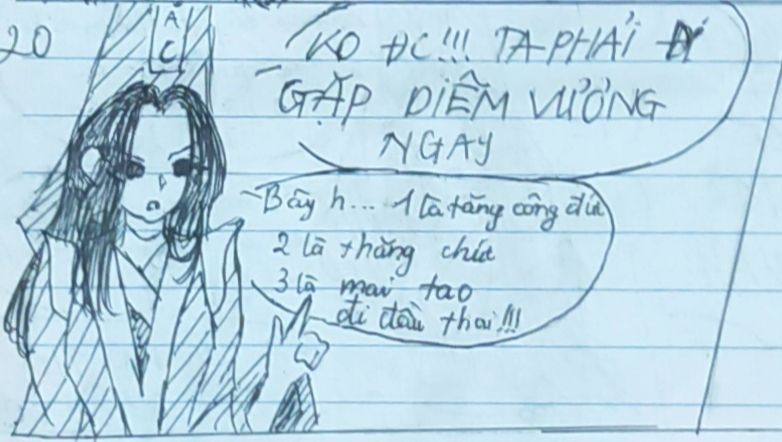 20
Á
C
KO ĐC!!! TA PHẢI ĐI
GẶP DIÊM VƯƠNG
NGAY
Bây h... 1 là tăng công đức
2 là thăng chức
3 là mai tao
đi đầu thai!!!